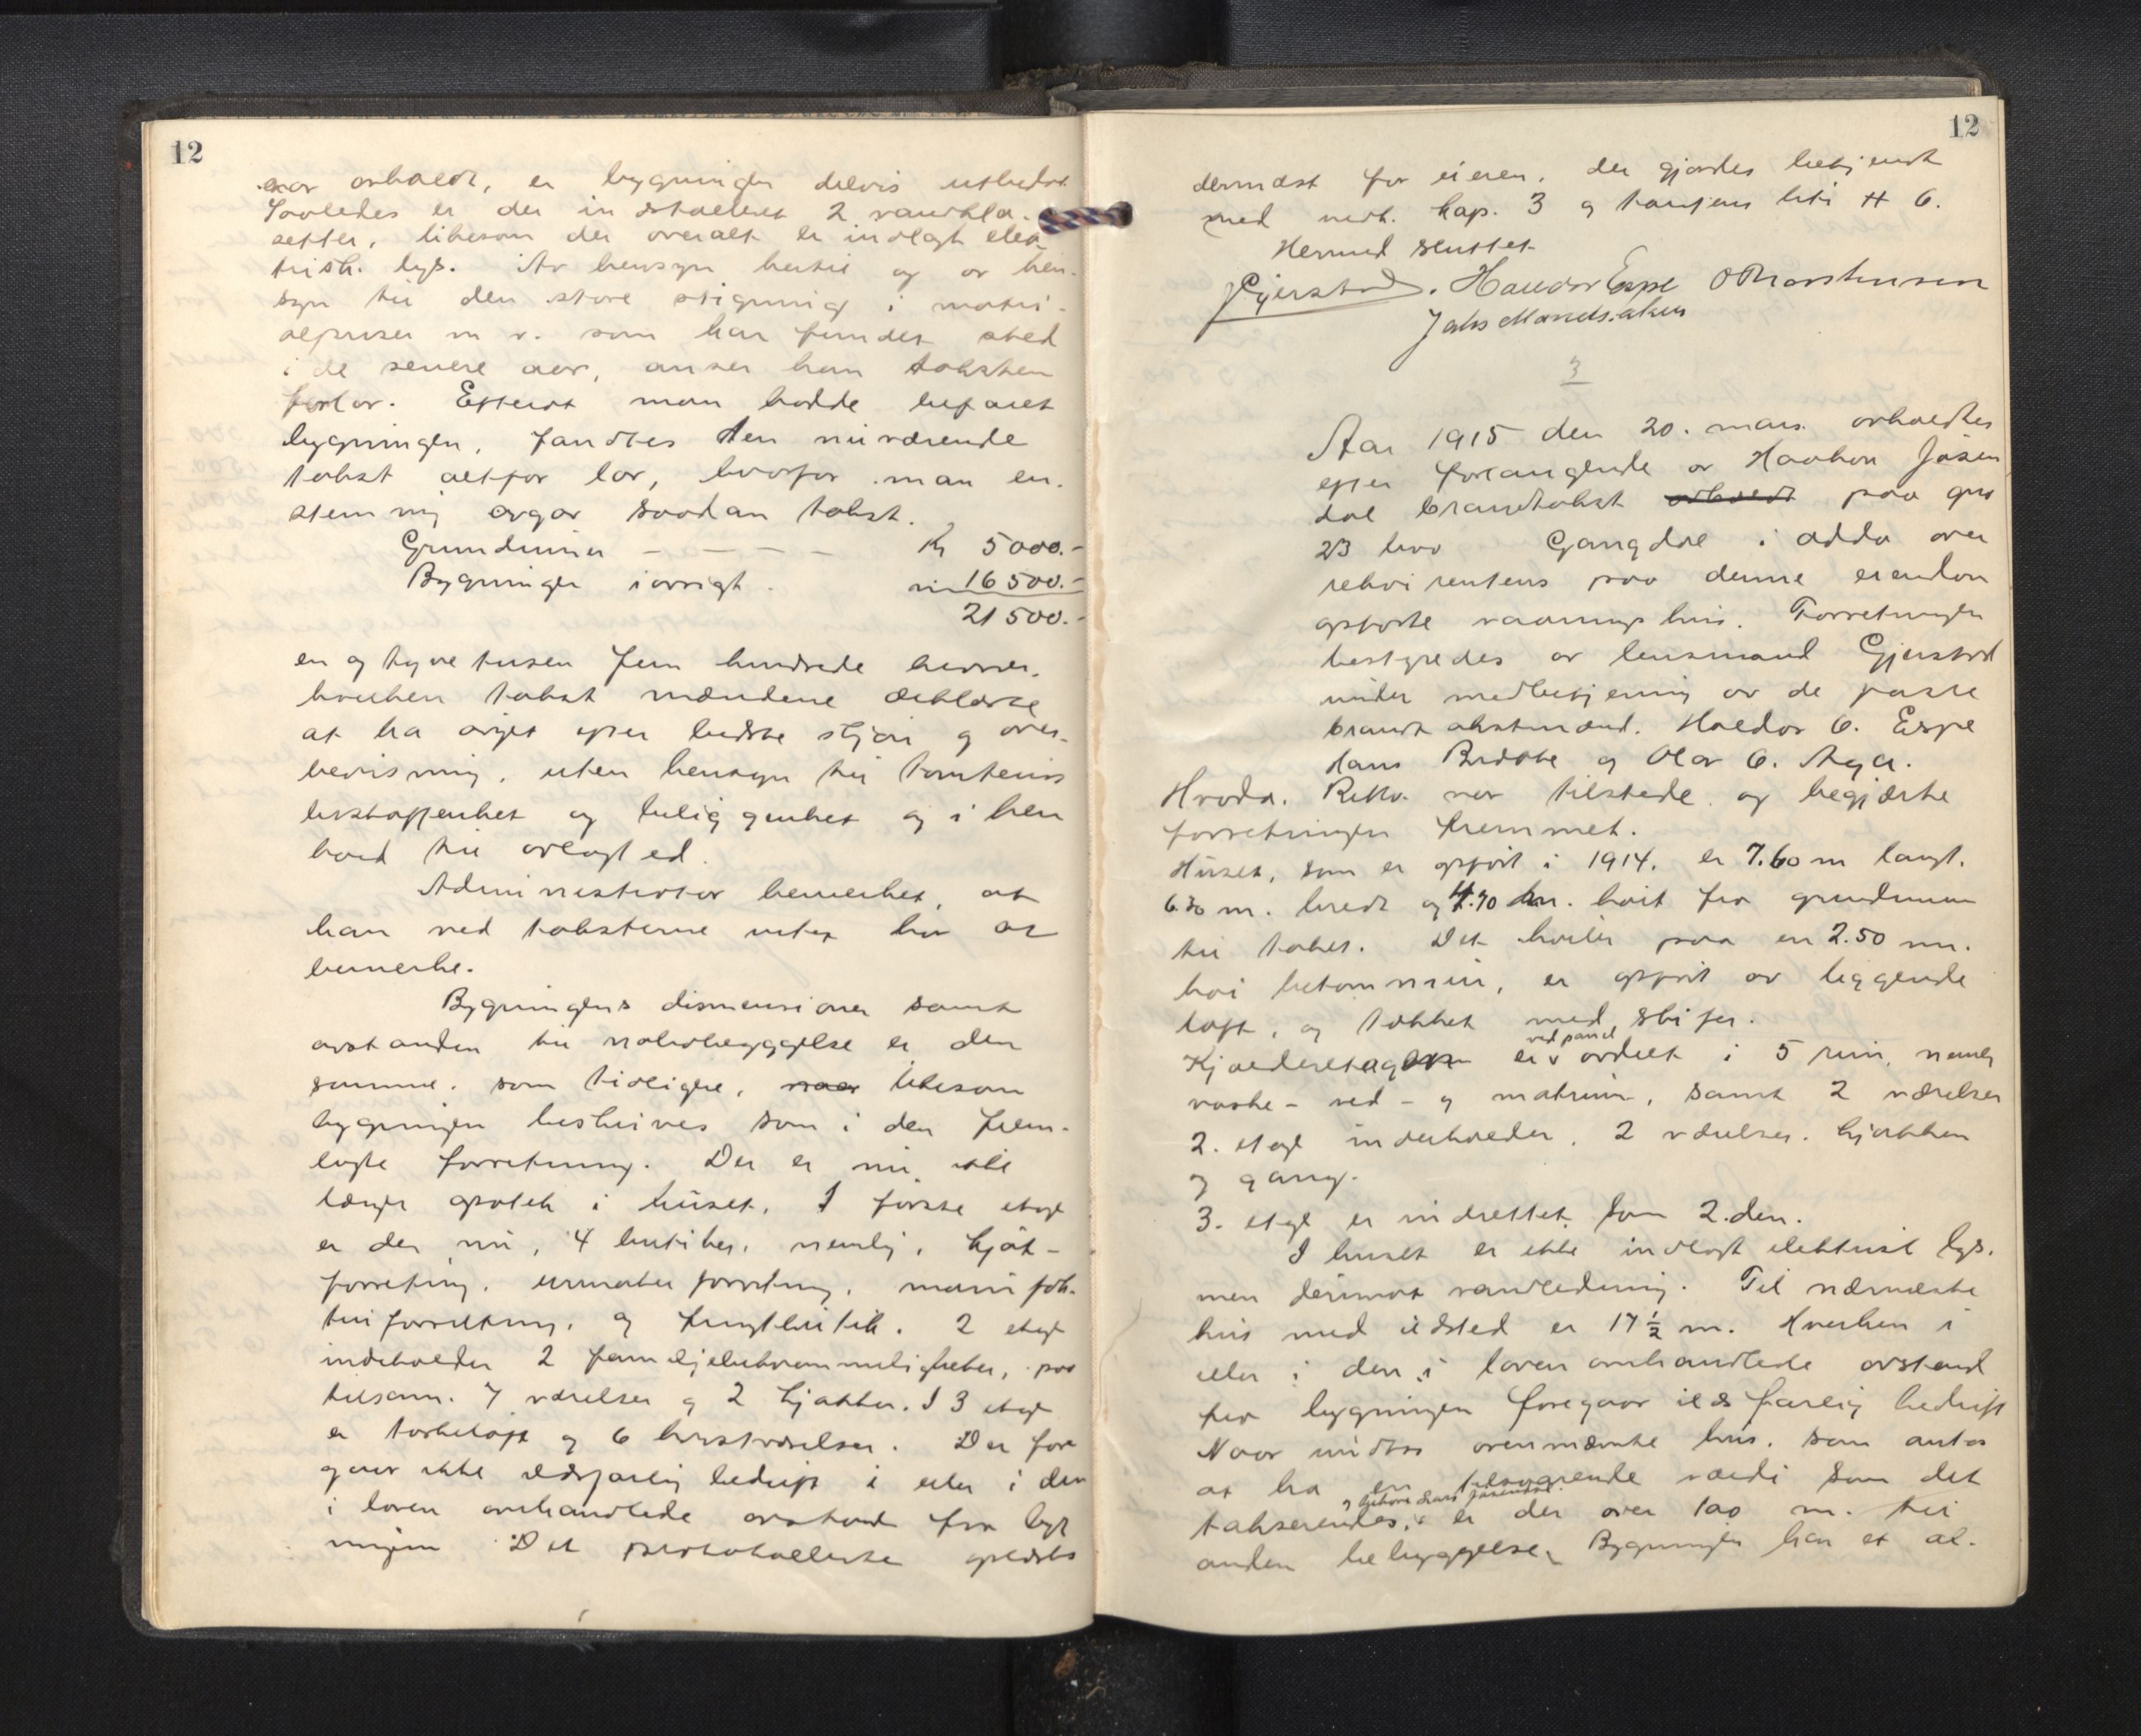 12
avholdt, er bygningen delvis utbedret
Saaledes er der installeret 2 vandklo-
setter, likesom der overalt er indlagt elek
trisk. lys. Av hensyn hertil og av hen-
syn til den store stigning i materi-
alpriser m v. som har fundet sted
i de senere aar, anser han taksten
for lav. Efterat man hadde befaret
bygningen, fandtes den nuværende
takst altfor lav, hvorfor man en-
stemmig avgav saadan takst.
Grundmur - - - - Kr 5000.-
Bygningen iøvrigt . " 16500.-
21500.-
en og tyve tusen fem hundrede kroner.
hvilken takst mændene erklærte
at ha avgit efter bedste skjøn og over-
bevisning, uten hensyn til tomtens
beskaffenhet og beliggenhet og i hen
hold til avlagt ed.
Administrator bemerket, at
han ved taksterne intet har at
bemerke.
Bygningens dimensioner samt
avstanden til nabobebyggelse er den
samme. som tidligere, naar likesom
bygningen beskrives som i den frem-
lagte forretning. Der er nu ikke
længer apotek i huset. I første etage
er der nu, 4 butiker, nemlig, kjøt-
forretning. urmakerforretning, manufak-
turforretning, og frugtbutik. 2 etage
indeholder 2 familjebekvemmeligheter, paa
tilsam. 7 værelser og 2 kjøkken. I 3 etage
er tørkeloft og 6 kvistværelser. Der fore
gaar ikke ildsfarlig bedrift i eller i den
i loven omhandlede avstand fra byg
ningen Det protokollerte oplæstes
12
dernæst for eieren, der gjordes bekjendt
med vedt. kap. 3 og taksens litr H 6.
Hermed sluttet
Gjerstad. Haldor Espe O Thorsteinsen
3
Aar 1915 den 20. mars avholdtes
efter forlangende av Haakon Jåsen
dal brandtakst avholdt paa gno
23 bno Gangdal i Odda over
rekvirentens paa denne eiendom
opførte vaaningshus. Forretningen
bestyredes av lensmand Gjerstad
under medbetjening av de faste
brandtakstmænd. Haldor O. Espe
Hans Bidste og Olav O. Aga.
Hvoda. Rekv. var tilstede og begjærte
forretningen fremmet.
Huset, som er opført i 1914, er 7.60 m langt.
6.30 m. bredt og 4.70 m. høit fra grundmur
til taket. Det hviler paa en 2.50 m.
høi betonmur, er opført av liggende
tøft, og tækket med skifer.
Kjælderetagen er avdelt i 5 rum, nemlig
ved panel
vaske- ved- og matrum, samt 2 værelser
2. etage indeholder, 2 værelser. kjøkken
og gang.
3. etage er indrettet som 2.den.
I huset er ikke indlagt elektrisk lys.
men derimot vandledning. Til nærmeste
hus med ildsted er 17 ½ m. Hverken i
eller i den i loven omhandlede avstand
fra bygningen foregaar ildsfarlig bedrift
Naar undtas ovennævnte hus. som antas
at ha en tilsvarende værdi som det
takserendes, er der over 100 m. til
anden bebyggelse. Bygningen har et al-